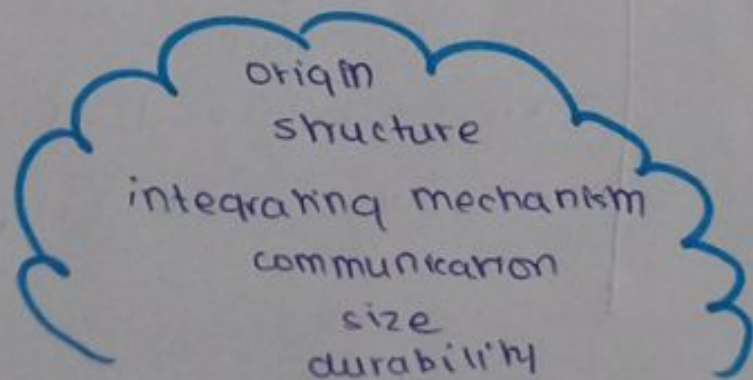 origin
structure
integrating mechanism
communication
size
durability